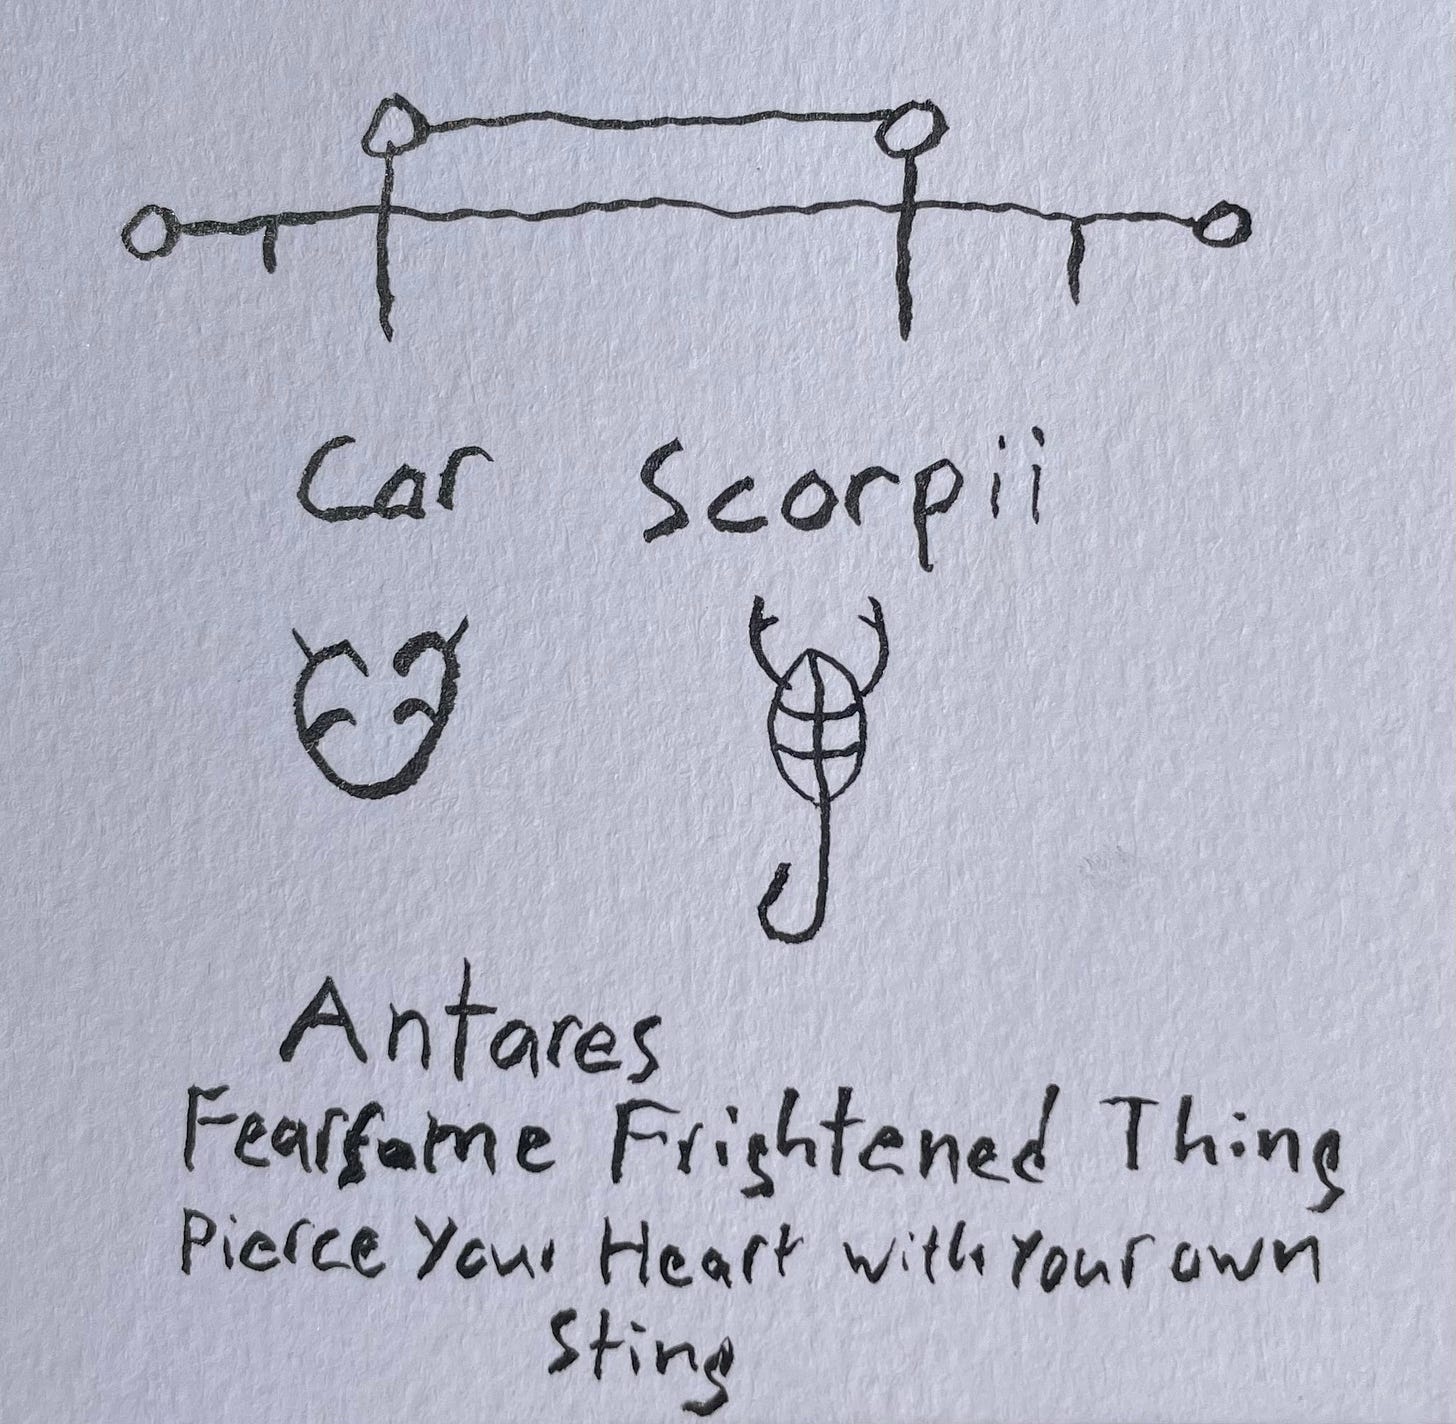 Cor Scorpii
Antares
Fearsome Frightened Thing
Pierce Your Heart with Your own
Sting